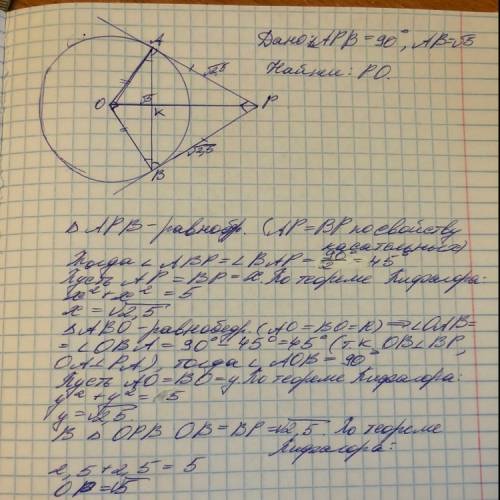 Дано: ∠APB = 90°, AB = √5
Найти: PO.
A
√2,5
O
√5
K
P
√2,5
B
△ APB - равнобр. (AP = BP по свойству
касательных)
Тогда ∠ ABP = ∠ BAP = 90/2 = 45°
Пусть AP = BP = x. По теореме Пифагора:
x² + x² = 5
x = √2,5
△ ABO - равнобедр. (AO = BO = R) ⇒ ∠OAB =
= ∠ OBA = 90° - 45° = 45° (т.к. OB⊥BP,
OA⊥PA), тогда ∠ AOB = 90°
Пусть AO = BO = y. По теореме Пифагора:
y² + y² = 5
y = √2,5
В △ OPB OB = BP = √2,5 По теореме
Пифагора:
2,5 + 2,5 = 5
OP = √5